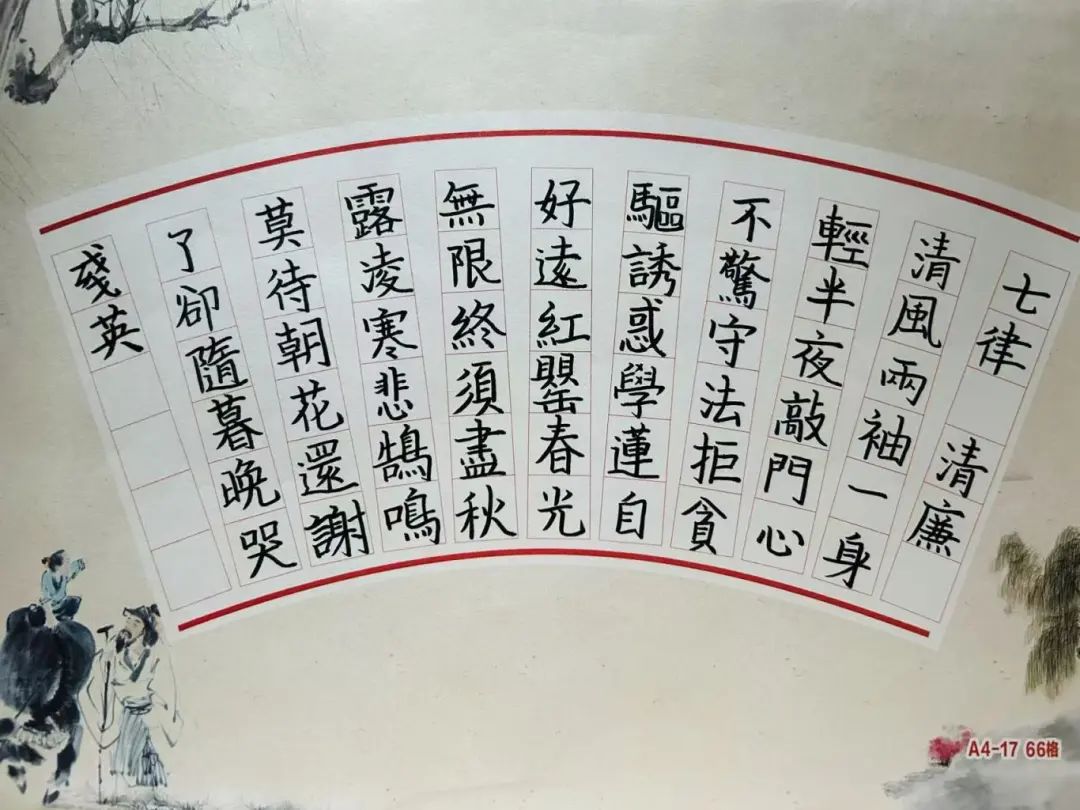 七律 清廉
清風兩袖一身
輕半夜敲門心
不驚守法拒貪
驅誘惑學蓮自
好遠紅罌春光
無限終須盡秋
露凌寒悲鵠鳴
莫待朝花還謝
了卻隨暮晚哭
殘英
A4-17 66格